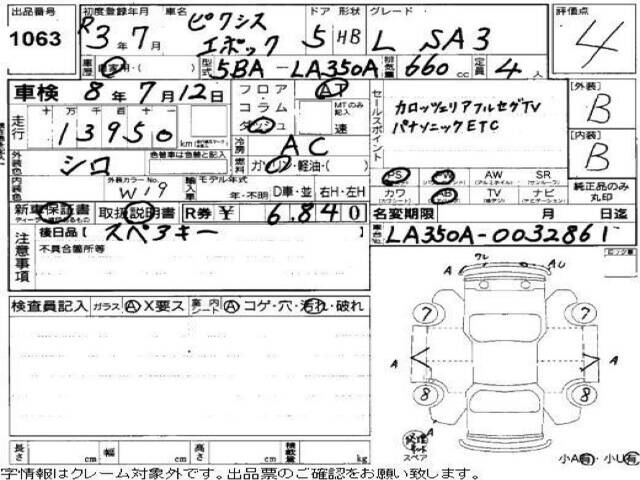 出品番号 初度登録年月 車名 ドア 形状 グレード 評価点
1063 R3年7月 ピクシス エポック 5 HB L SA3 4
車歴 自家用・( ) 型式 5BA-LA350A 排気量 660cc 定員 4人
車検 8年7月12日 フロア AT セールスポイント [外装]
走行 十万千百十一 コラム MTのみ記入 カロッツェリアフルセグTV B
13950 km ダッシュ 速 パナソニックETC [内装]
外装色 シロ 色替車は色替と記入 冷房 AC B
燃料 ガソリン・軽油・( ) PS PW AW SR 純正品のみ丸印
内装色 外装カラーNo. W19 輸入車 モデル年式 年・不明 D車・並 右H・左H カワ AB TV ナビ
新車保証書 取扱説明書 R券 ¥ 6,840 名変期限 月 日迄
注意事項 後日品【 スペアキー 】 車台No. LA350A-0032861
不具合箇所等 ロック車
検査員記入 ガラス A X要ス 車内シート A コゲ・穴・汚れ・破れ
ワレ A A U
7 7
A A
8 8
A
スペア 小A有・小U有
長さ cm 幅 cm 高さ cm 積載量 kg
字情報はクレーム対象外です。出品票のご確認をお願い致します。